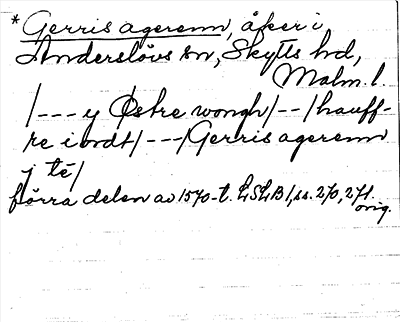 * Gerris agerenn, åker i
Anderslövs sn, Skytts hd,
Malm. l.
/--- y Østre wongh/--/hauff-
re i ordt/---/Gerris agerenn
j té/
förra delen av 1570-t. LSLB 1, ss. 270, 271.
orig.